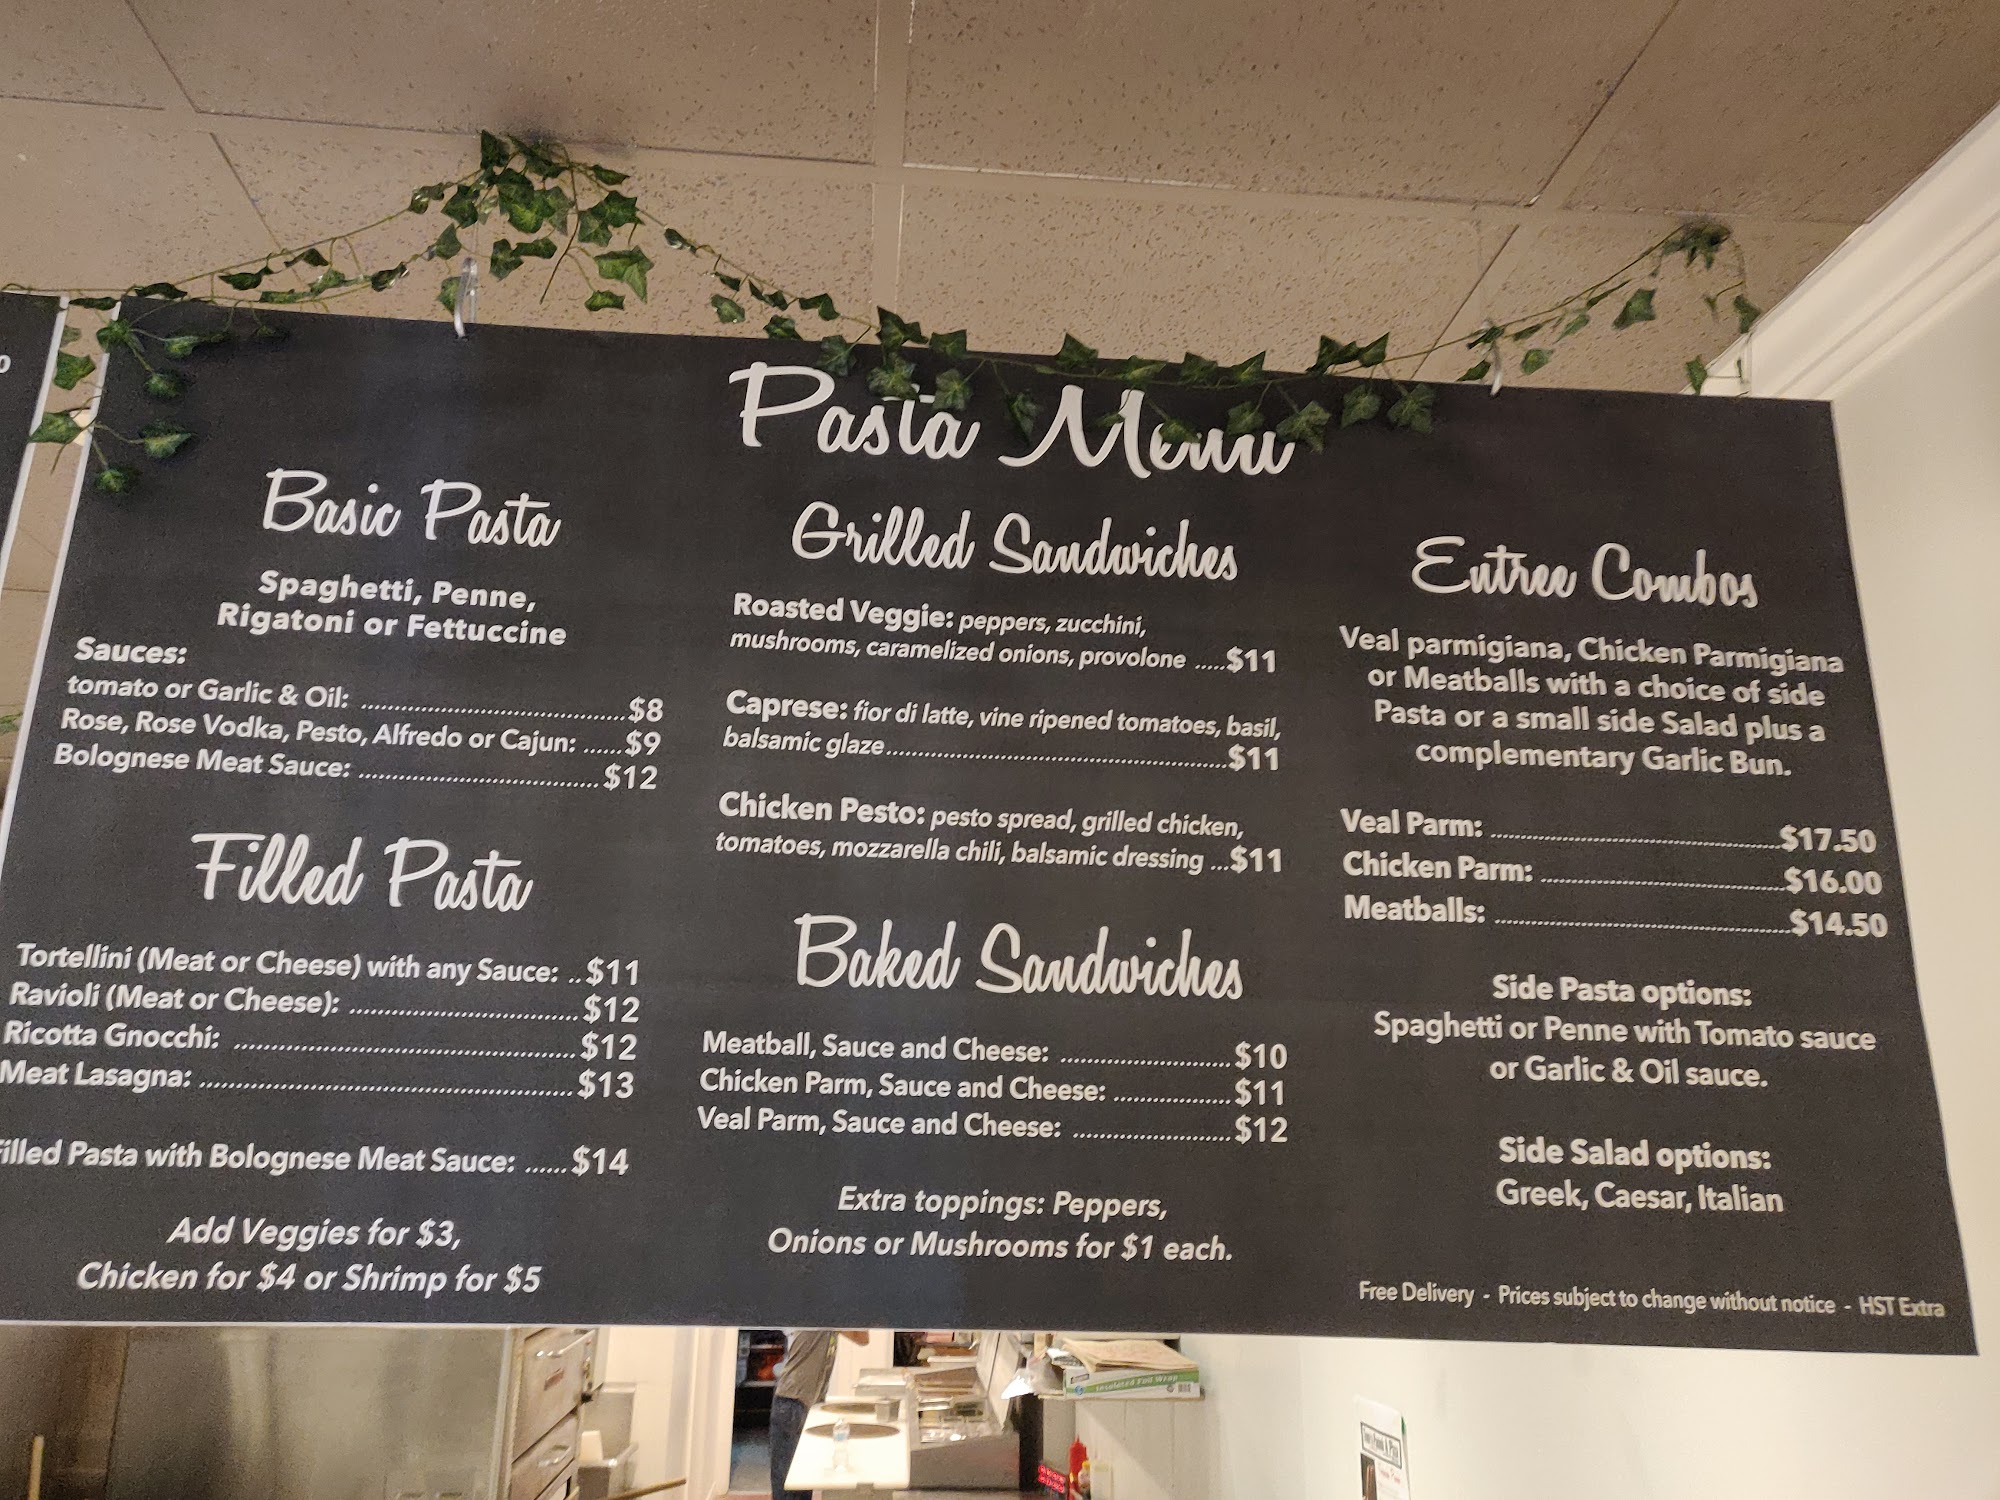 Pasta Menu
Basic Pasta
Spaghetti, Penne,
Rigatoni or Fettuccine
Sauces:
tomato or Garlic & Oil: ........................................$8
Rose, Rose Vodka, Pesto, Alfredo or Cajun: ......$9
Bolognese Meat Sauce: ....................................$12
Filled Pasta
Tortellini (Meat or Cheese) with any Sauce: ..$11
Ravioli (Meat or Cheese): ..................................$12
Ricotta Gnocchi: ..................................................$12
Meat Lasagna: ......................................................$13
illed Pasta with Bolognese Meat Sauce: ......$14
Add Veggies for $3,
Chicken for $4 or Shrimp for $5
Grilled Sandwiches
Roasted Veggie: peppers, zucchini,
mushrooms, caramelized onions, provolone .....$11
Caprese: fior di latte, vine ripened tomatoes, basil,
balsamic glaze....................................................$11
Chicken Pesto: pesto spread, grilled chicken,
tomatoes, mozzarella chili, balsamic dressing ...$11
Baked Sandwiches
Meatball, Sauce and Cheese: ..........................$10
Chicken Parm, Sauce and Cheese: ..................$11
Veal Parm, Sauce and Cheese: ........................$12
Extra toppings: Peppers,
Onions or Mushrooms for $1 each.
Entree Combos
Veal parmigiana, Chicken Parmigiana
or Meatballs with a choice of side
Pasta or a small side Salad plus a
complementary Garlic Bun.
Veal Parm: ..................................................$17.50
Chicken Parm: ..........................................$16.00
Meatballs: ..................................................$14.50
Side Pasta options:
Spaghetti or Penne with Tomato sauce
or Garlic & Oil sauce.
Side Salad options:
Greek, Caesar, Italian
Free Delivery - Prices subject to change without notice - HST Extra
0
Insulated Foil Wrap